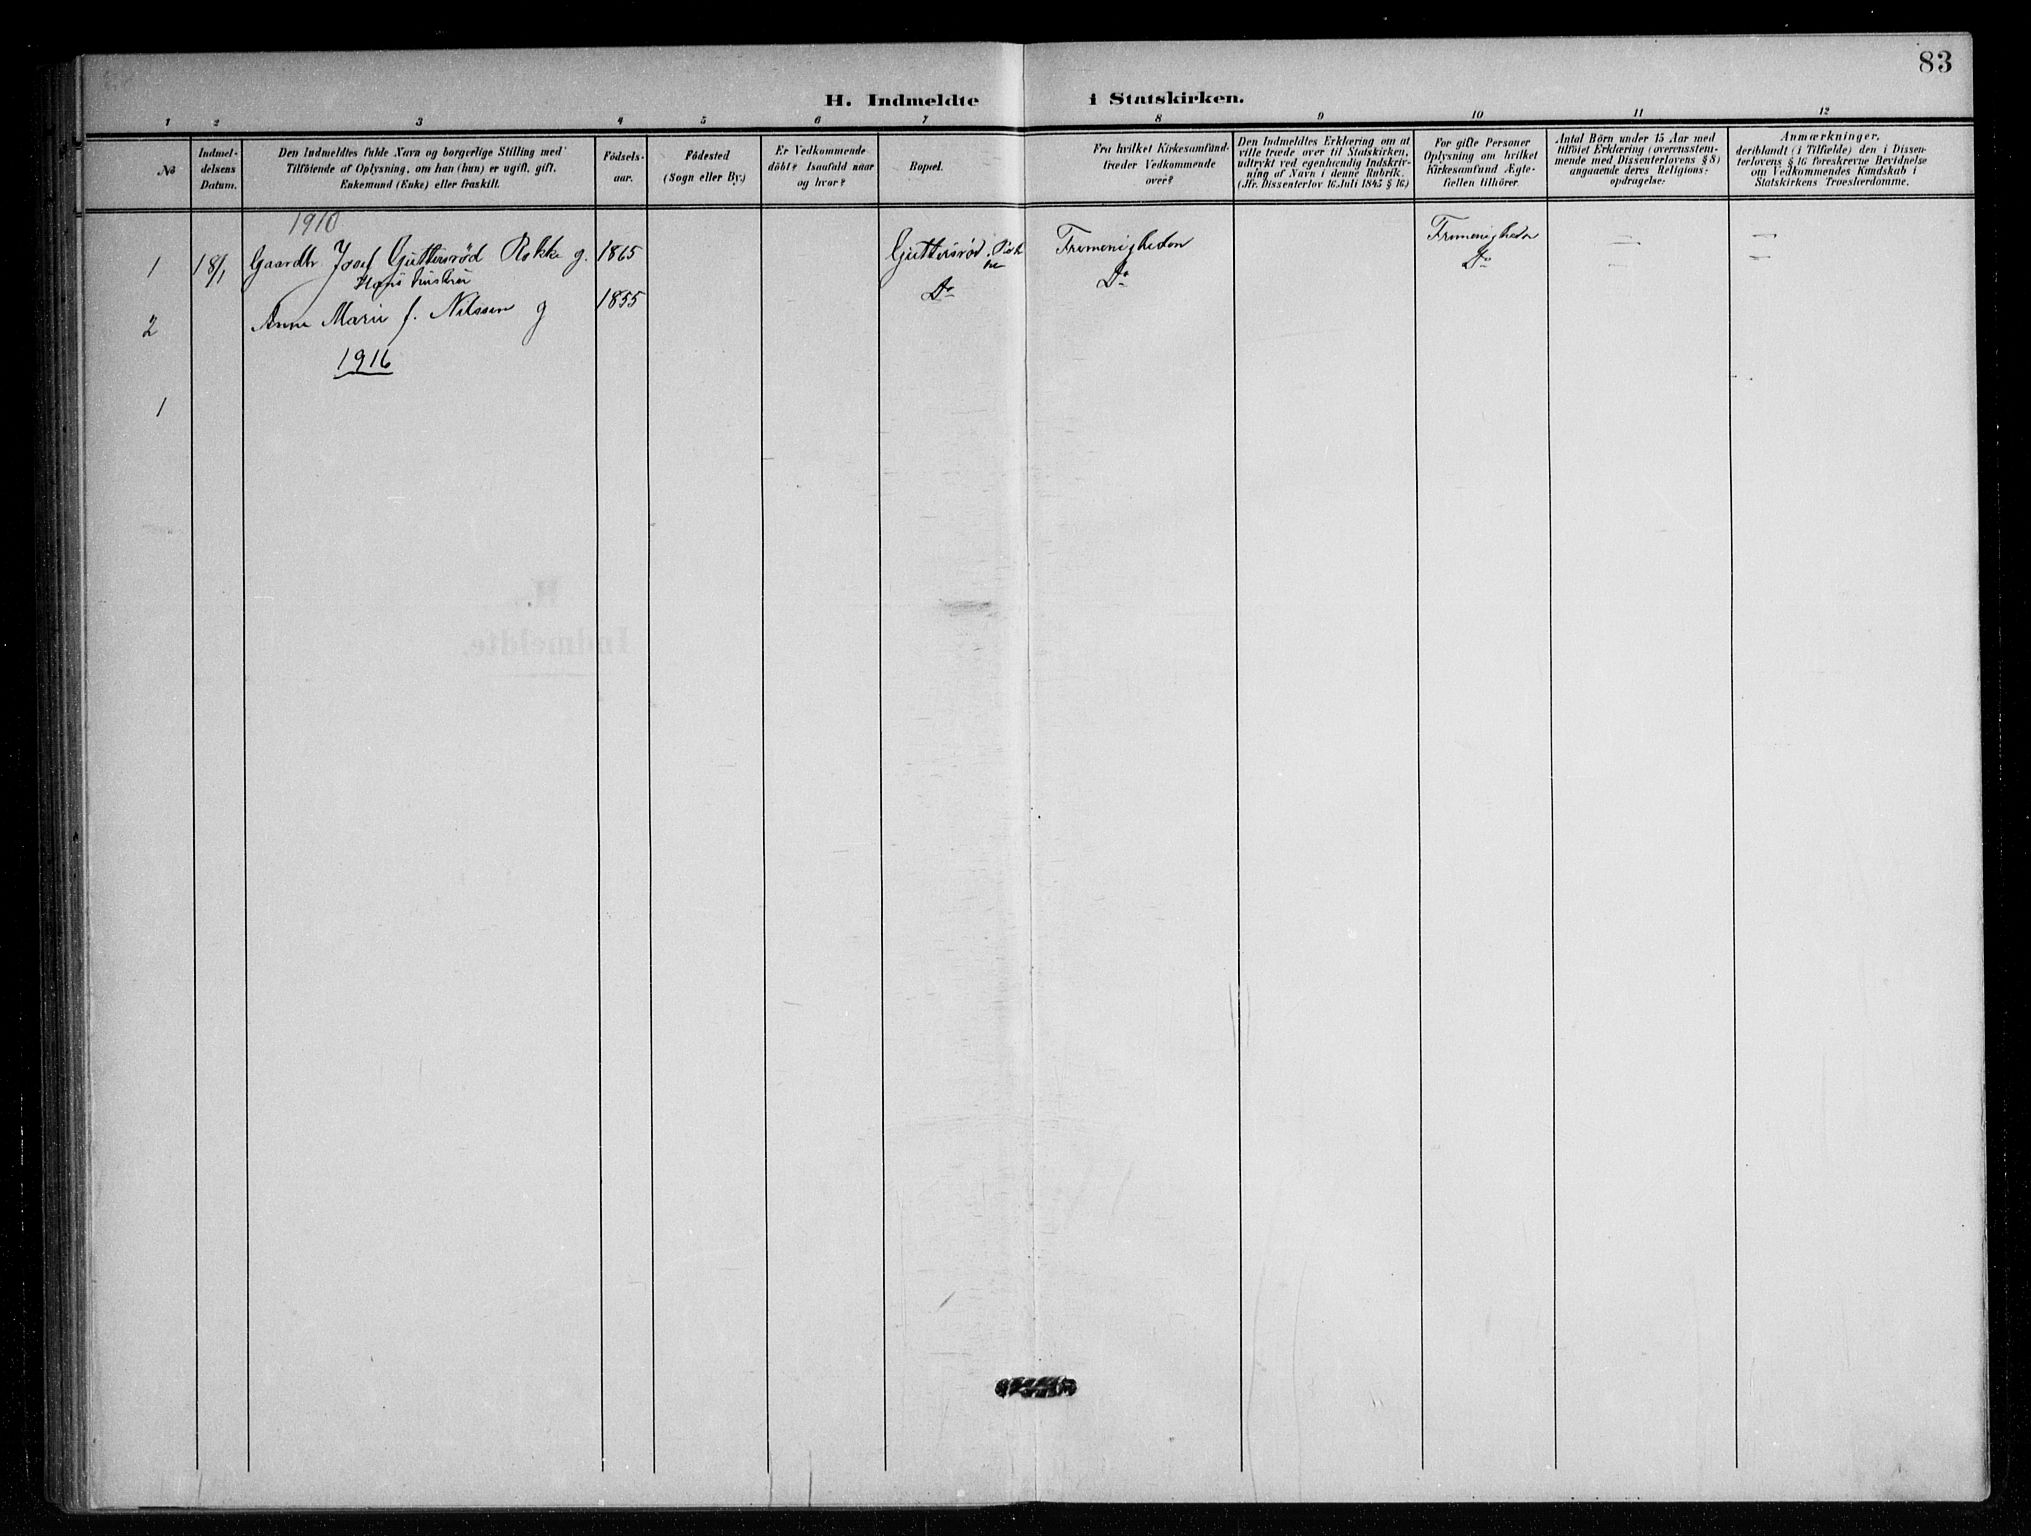 83
H. Indmeldte i Statskirken.
1 2 3 4 5 6 7 8 9 10 11 12
№
Indmel-
delsens
Datum.
Den Indmeldtes fulde Navn og borgerlige Stilling med
Tilföiende af Oplysning, om han (hun) er ugift, gift,
Enkemand (Enke) eller fraskilt.
Födsels-
aar.
Födested
(Sogn eller By.)
Er Vedkommende
döbt? Isaafald naar
og hvor?
Bopæl.
Fra hvilket Kirkesamfund
træder Vedkommende
over?
Den Indmeldtes Erklæring om at
ville træde over til Statskirken,
udtrykt ved egenhændig Indskriv-
ning af Navn i denne Rubrik.
(Jfr. Dissenterlov 16 Juli 1845 § 16.)
For gifte Personer
Oplysning om hvilket
Kirkesamfund Ægte-
fællen tilhörer.
Antal Börn under 15 Aar med
tilföiet Erklæring (overensstem-
mende med Dissenterlovens § 8)
angaaende deres Religions-
opdragelse:
Anmærkninger,
deriblandt (i Tilfælde) den i Dissen-
terlovens § 16 foreskrevne Bevidnelse
om Vedkommendes Kundskab i
Statskirkens Troeslærdomme.
1910
1 18/1 Gaardbr Josef Guttersrød Rokke g. 1865 Guttersrød Fremenigheden Fremenigheden — —
Hans hustru
2 Anne Marie f. Nilssen g 1855 Do Do Do — —
1916
1